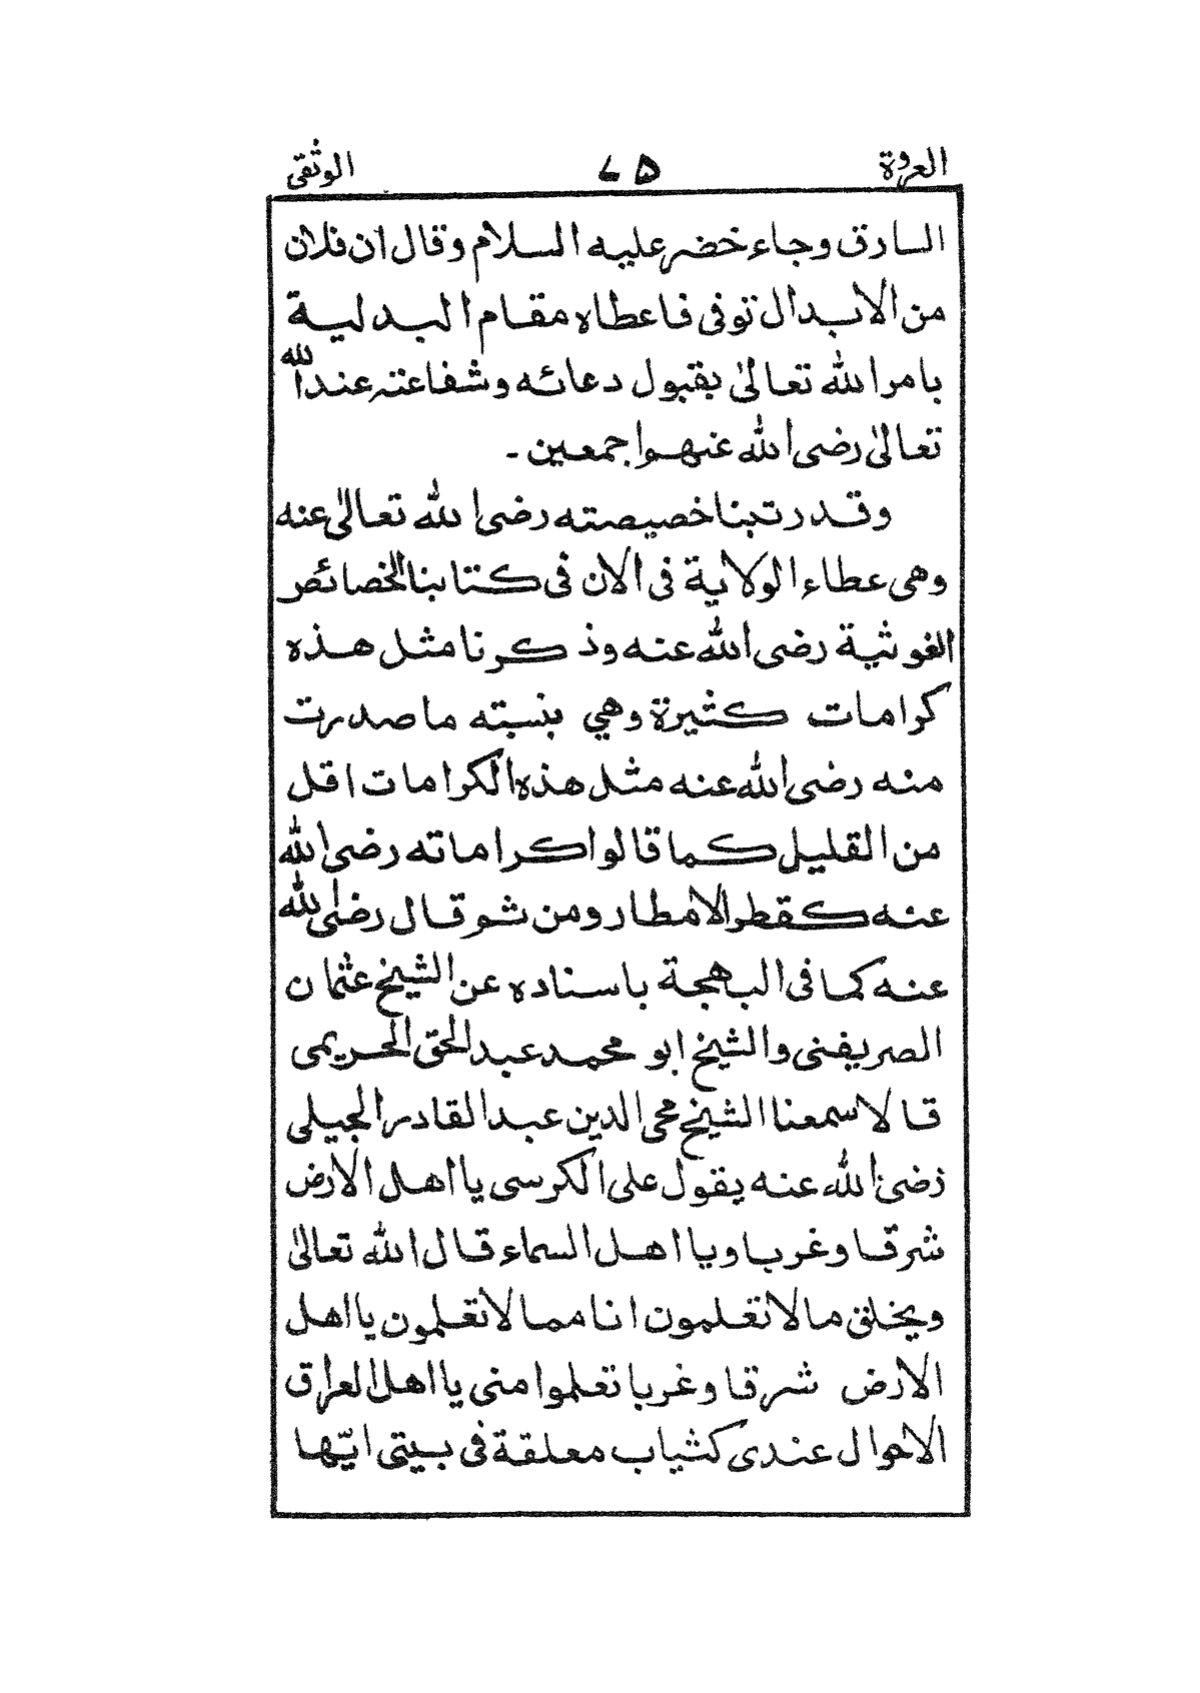 العروة ٧٥ الوثقى
السارق وجاء خضر عليه السلام وقال ان فلان
من الابدال توفى فاعطاه مقام البدلية
بامر الله تعالىٰ بقبول دعائه وشفاعته عند الله
تعالىٰ رضى الله عنهوا جمعين -
وقد رتبنا خصيصته رضى الله تعالىٰ عنه
وهى عطاء الولاية فى الان فى كتابنا الخصائص
الغوثية رضى الله عنه وذكرنا مثل هذه
كرامات كثيرة وهي بنسبته ما صدرت
منه رضى الله عنه مثل هذه الكرامات اقل
من القليل كما قالوا كراماته رضى الله
عنه كقطر الامطار ومن شو قال رضى الله
عنه كما فى البهجة باسناده عن الشيخ عثمان
الصريفنى والشيخ ابو محمد عبد الحق الحريمى
قالا سمعنا الشيخ محى الدين عبد القادر الجيلى
رضى الله عنه يقول على الكرسى يا اهل الارض
شرقا وغربا ويا اهل السماء قال الله تعالىٰ
ويخلق ما لا تعلمون انا مما لا تعلمون يا اهل
الارض شرقا وغربا تعلموا منى يا اهل العراق
الاحوال عندى كثياب معلقة فى بيتى ايّها